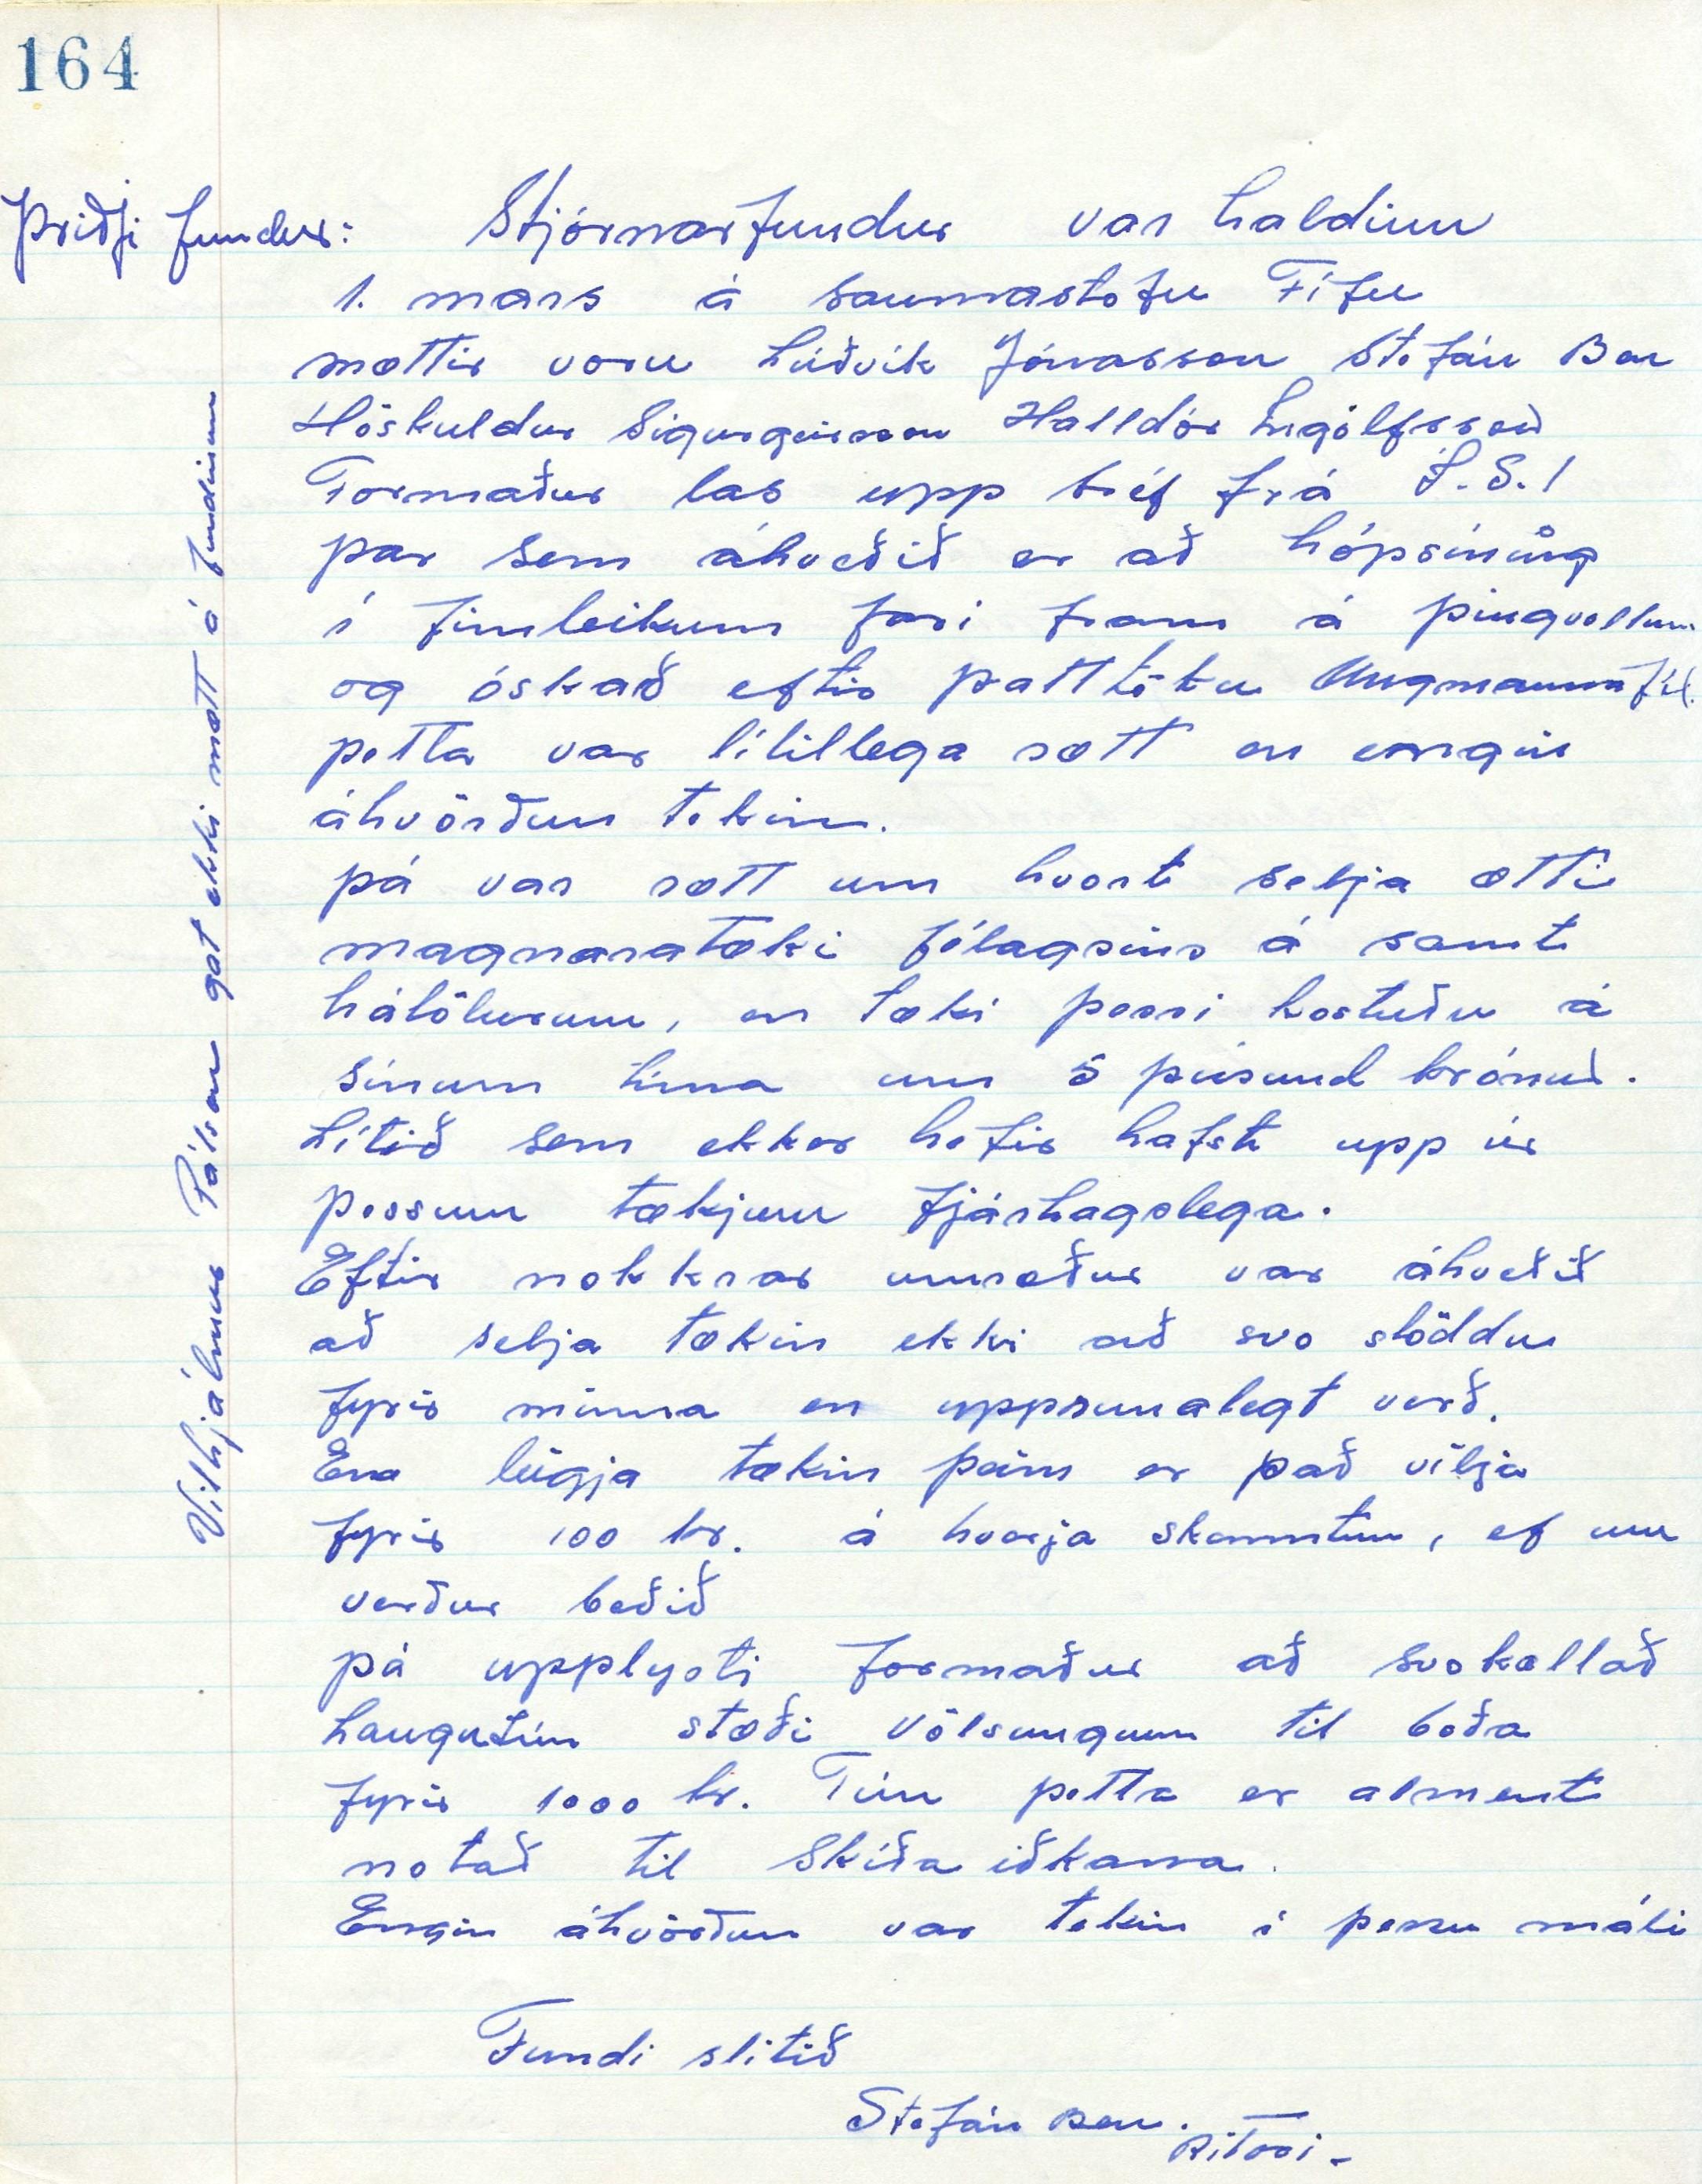 164
Þriðji fundur: Stjórnarfundur var haldinn
1. mars á saumastofu Fífu
mættir voru Lúðvík Jónasson Stefán Ben
Höskuldur Sigurgeirsson Halldór Ingólfsson
Formaður las upp bréf frá Í.S.Í
þar sem ákveðið er að hópsýning
í fimleikum fari fram á þingvöllum
og óskað eftir þátttöku Ungmannafél.
þetta var lítillega rætt en engin
ákvörðun tekin.
þá var rætt um hvort selja ætti
magnaratæki félagsins á samt
hátölurum, en tæki þessi kostuðu á
sínum tíma um 5 þúsund krónur.
Lítið sem ekker hefir hafst upp úr
þessum tækjum fjárhagslega.
Eftir nokkrar umræður var ákveðið
að selja tækin ekki að svo stöddu
fyrir minna en upprunalegt verð.
En leigja tækin þeim er það vilja
fyrir 100 kr. á hverja skemmtun, ef um
verður beðið
þá upplysti formaður að svokallað
haugatún stæði Völsungum til boða
fyrir 1000 kr. Tún þetta er alment
notað til Skíða iðkana.
Engin ákvörðun var tekin í þessu máli
Fundi slitið
Stefán Ben.
Ritari-
Vilhjálmur Pálsson gat ekki mætt á fundinum